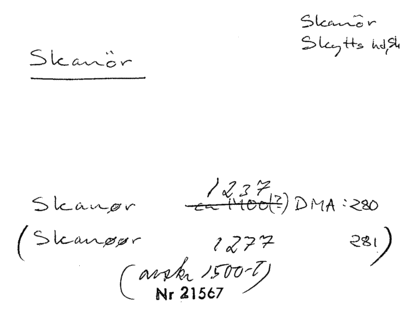 Skanör
Skytts hd, Sk
Skanör
1237
Skanør ca 1400(?) DMA: 280
(Skanøør 1277 281)
(avskr 1500-t)
Nr 21567